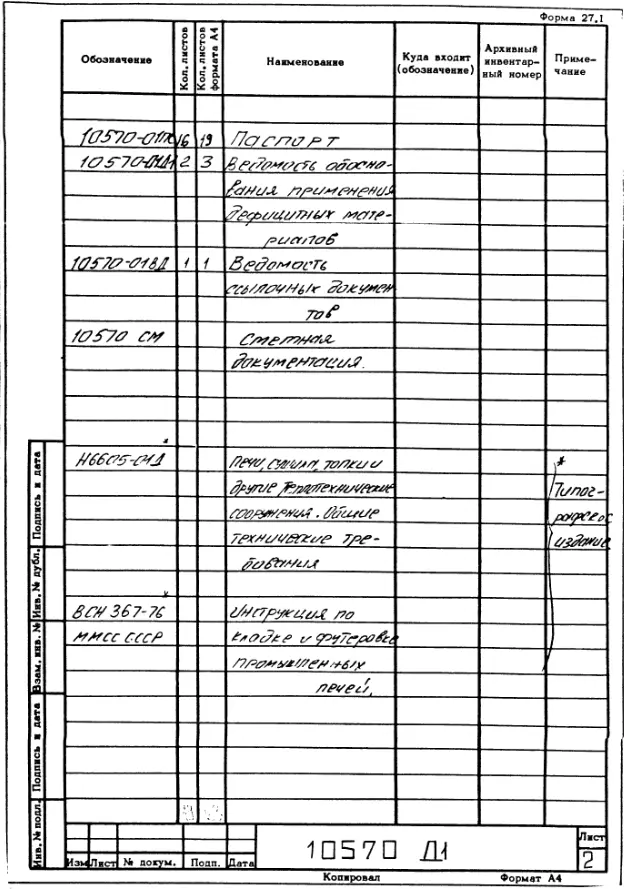 Форма 27.1
Обозначение Кол. листов Кол. листов формата А4 Наименование Куда входит (обозначение) Архивный инвентарный номер Примечание
10570-01ПС 16 19 Паспорт
10570-01Д1 2 3 Ведомость обосно-
вания применения
дефицитных мате-
риалов
10570-01ВД 1 1 Ведомость
ссылочных докумен
тов
10570 СМ Сметная
документация.
Н6605-01Д* Печи, сушила, топки и *
другие теплотехнические Типог-
сооружения. Общие рафское
технические тре- издание
бования
ВСН 367-76* Инструкция по
ММСС СССР кладке и футеровке
промышленных
печей.
Инв. № подл. Подпись и дата Взам. инв. № Инв. № дубл. Подпись и дата
Изм Лист № докум. Подп. Дата
10570 Д1
Лист
2
Копировал Формат А4